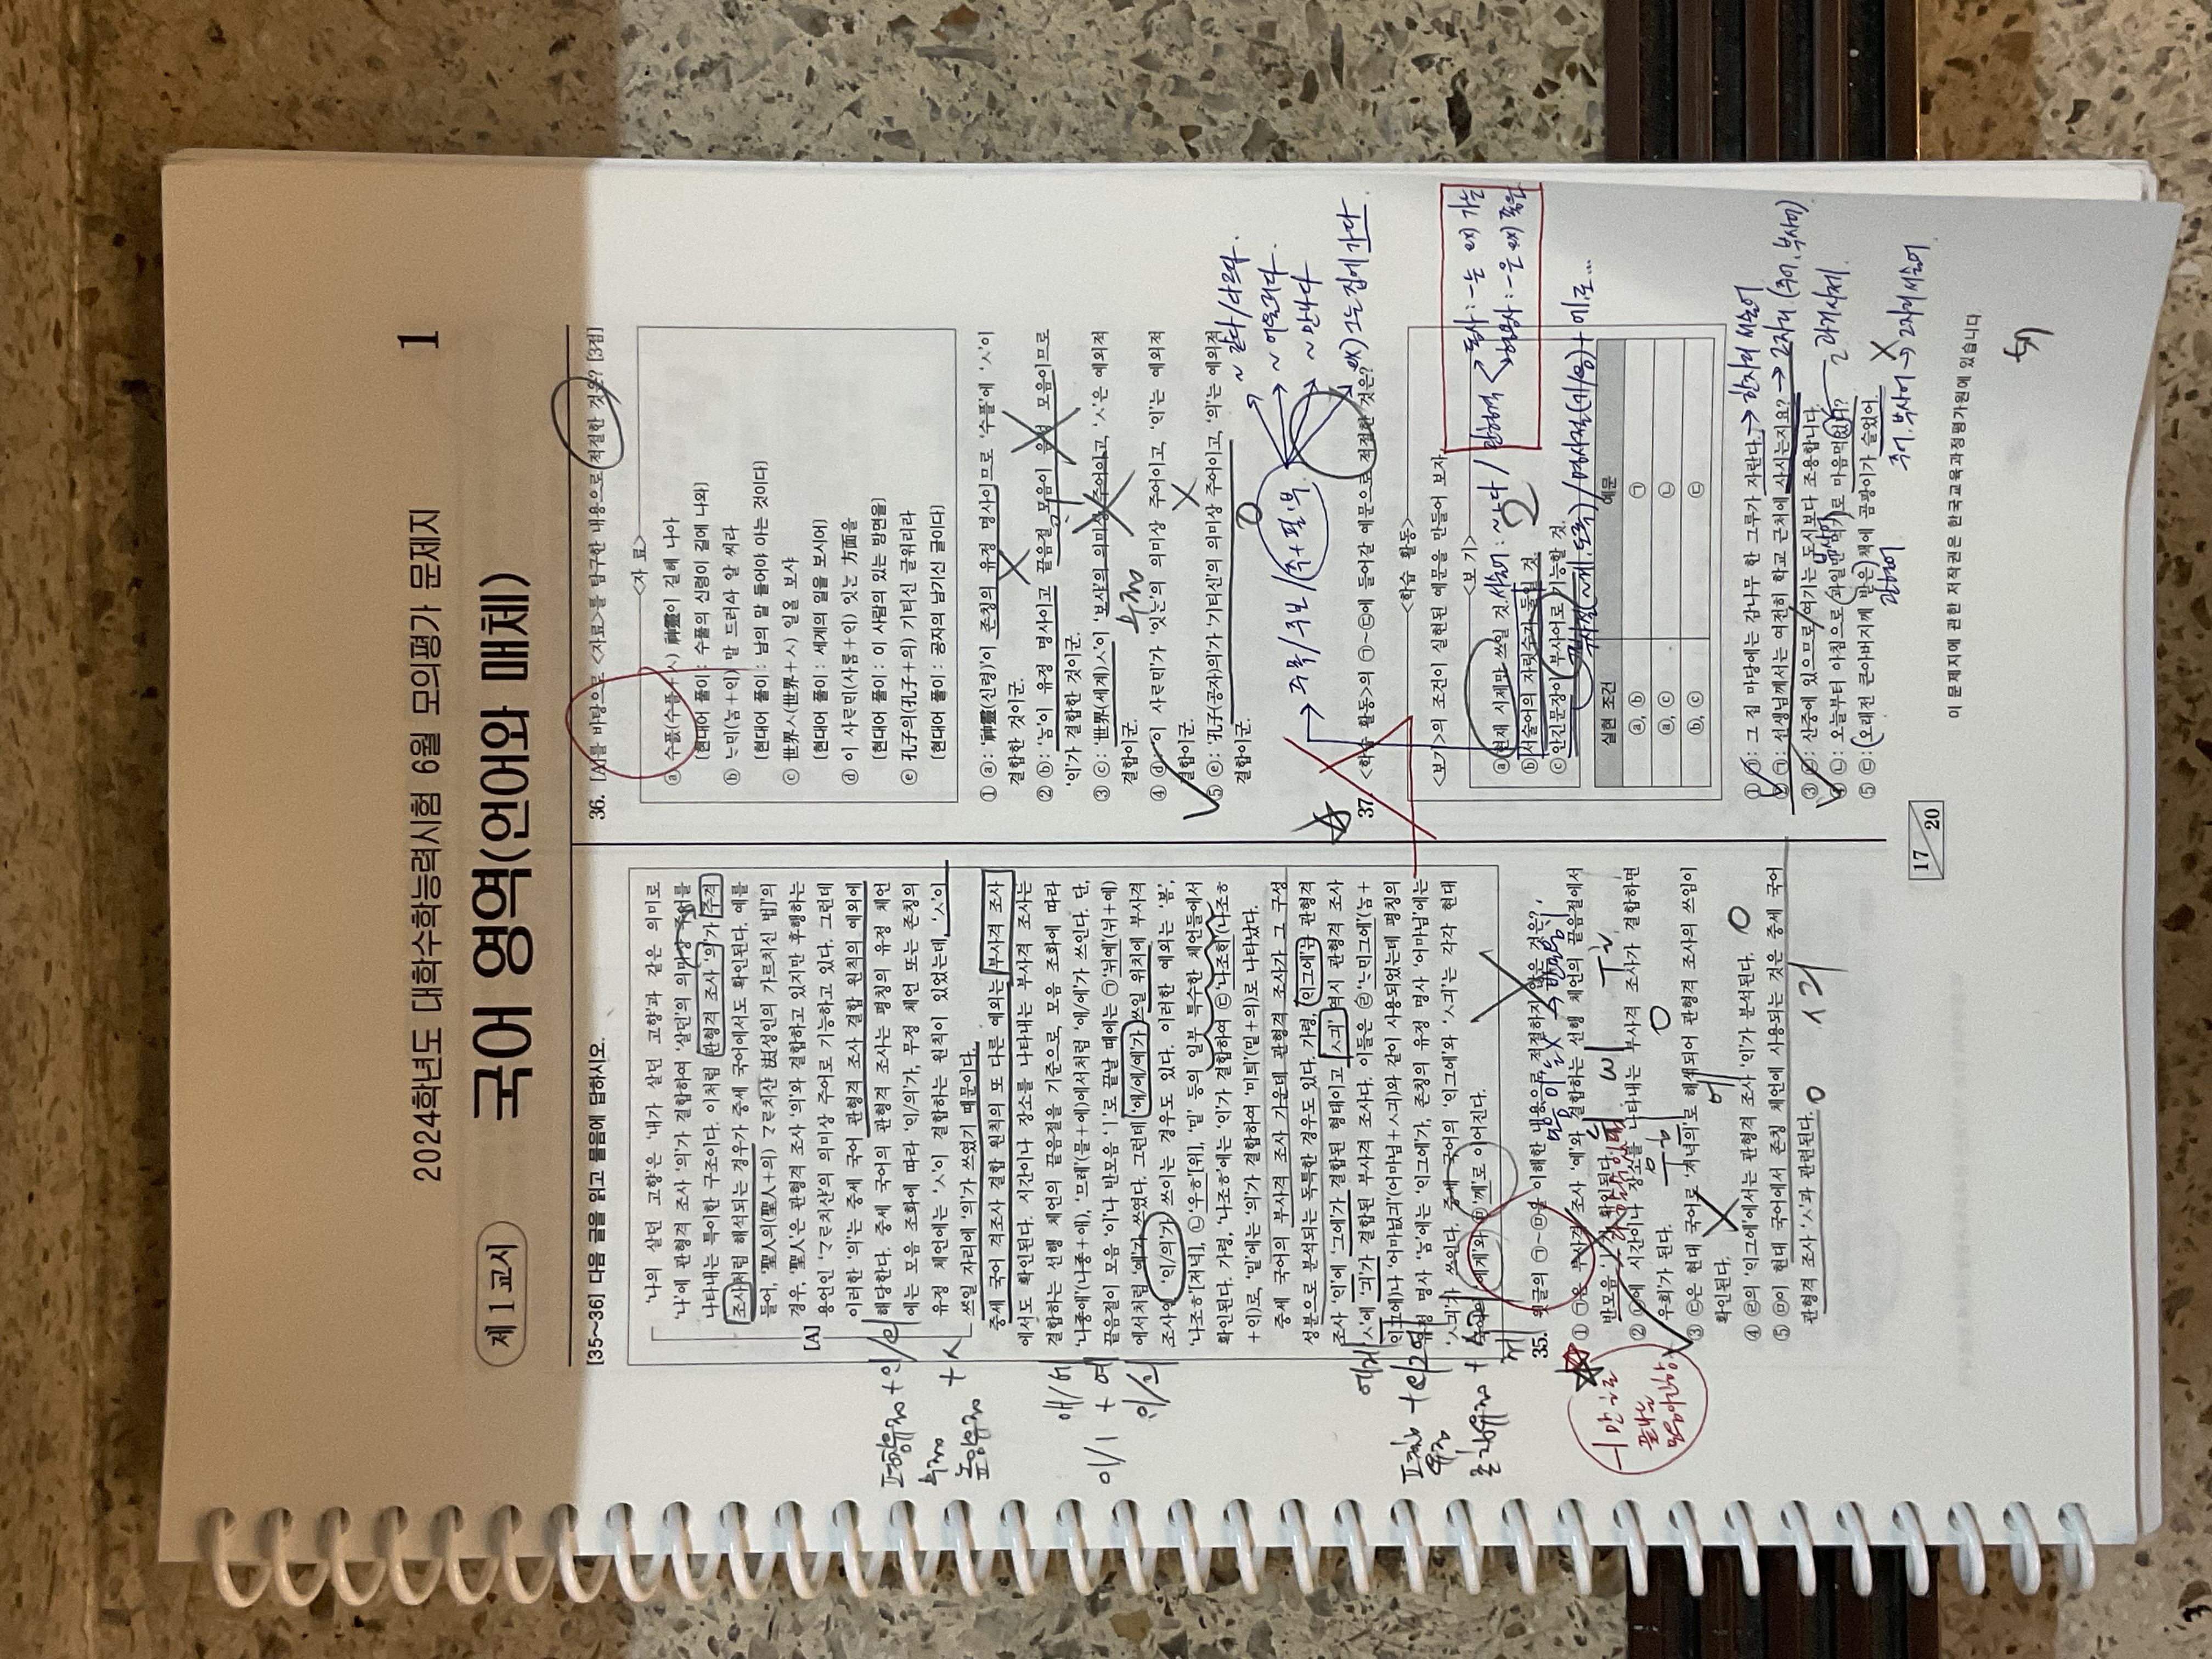 2024학년도 대학수학능력시험 6월 모의평가 문제지
1
제 1 교시
국어 영역(언어와 매체)
[35~36] 다음 글을 읽고 물음에 답하시오.
'나의 살던 고향'은 '내가 살던 고향'과 같은 의미로
'나'에 관형격 조사 '의'가 결합하여 '살던'의 의미상 주어를
나타내는 특이한 구조이다. 이처럼 관형격 조사 '의'가 주격
조사처럼 해석되는 경우가 중세 국어에서도 확인된다. 예를
들어, '聖人의(聖人+의) ᄀᆞᄅᆞ치샨 法[성인의 가르치신 법]'의
경우, '聖人'은 관형격 조사 '의'와 결합하고 있지만 후행하는
용언인 'ᄀᆞᄅᆞ치샨'의 의미상 주어로 기능하고 있다. 그런데
이러한 '의'는 중세 국어 관형격 조사 결합 원칙의 예외에
[A]
해당한다. 중세 국어의 관형격 조사는 평칭의 유정 체언
에는 모음 조화에 따라 'ᄋᆡ/의'가, 무정 체언 또는 존칭의
유정 체언에는 'ㅅ'이 결합하는 원칙이 있었는데, 'ㅅ'이
쓰일 자리에 '의'가 쓰였기 때문이다.
중세 국어 격조사 결합 원칙의 또 다른 예외는 부사격 조사
에서도 확인된다. 시간이나 장소를 나타내는 부사격 조사는
결합하는 선행 체언의 끝음절을 기준으로, 모음 조화에 따라
'나죵애'(나죵+애), '므레'(믈+에)에서처럼 '애/에'가 쓰인다. 단,
끝음절이 모음 '이'나 반모음 'ㅣ'로 끝날 때에는 ㉠'뉘예'(뉘+예)
에서처럼 '예'가 쓰였다. 그런데 '애/에/예'가 쓰일 위치에 부사격
조사인 'ᄋᆡ/의'가 쓰이는 경우도 있다. 이러한 예외는 '봄',
'나조ㅎ'[저녁], ㉡'우ㅎ'[위], '밑' 등의 일부 특수한 체언들에서
확인된다. 가령, '나조ㅎ'에는 'ᄋᆡ'가 결합하여 ㉢'나조ᄒᆡ'(나조ㅎ
+ᄋᆡ)로, '밑'에는 '의'가 결합하여 '미틔'(밑+의)로 나타났다.
중세 국어의 부사격 조사 가운데 관형격 조사가 그 구성
성분으로 분석되는 독특한 경우도 있다. 가령, 'ᄋᆡ그에'는 관형격
조사 'ᄋᆡ'에 '그에'가 결합된 형태이고 'ㅅ긔' 역시 관형격 조사
'ㅅ'에 '긔'가 결합된 부사격 조사다. 이들은 ㉣'ᄂᆞᄆᆡ그에'(ᄂᆞᆷ+
ᄋᆡ그에)나 '어마니ᇝ긔'(어마님+ㅅ긔)와 같이 사용되었는데 평칭의
유정 명사 'ᄂᆞᆷ'에는 'ᄋᆡ그에'가, 존칭의 유정 명사 '어마님'에는
'ㅅ긔'가 쓰인다. 중세 국어의 'ᄋᆡ그에'와 'ㅅ긔'는 각각 현대
국어의 '에게'와 ㉤'께'로 이어진다.
평칭유정 +ᄋᆡ/의
무정
높임유정 +ㅅ
애/에
이/ㅣ + 예
35. 윗글의 ㉠~㉤을 이해한 내용으로 적절하지 않은 것은?
① ㉠은 부사격 조사 '예'와 결합하는 선행 체언의 끝음절에서
반모음 'ㅣ'가 확인된다.
② ㉡에 시간이나 장소를 나타내는 부사격 조사가 결합하면
'우희'가 된다.
③ ㉢은 현대 국어로 '저녁의'로 해석되어 관형격 조사의 쓰임이
확인된다.
④ ㉣의 'ᄋᆡ그에'에서는 관형격 조사 'ᄋᆡ'가 분석된다.
⑤ ㉤이 현대 국어에서 존칭 체언에 사용되는 것은 중세 국어
관형격 조사 'ㅅ'과 관련된다.
36. [A]를 바탕으로 <자료>를 탐구한 내용으로 적절한 것은? [3점]
<자 료>
ⓐ 수픐(수플+ㅅ) 神靈이 길헤 나아
[현대어 풀이 : 수풀의 신령이 길에 나와]
ⓑ ᄂᆞᄆᆡ(ᄂᆞᆷ+ᄋᆡ) 말 드러ᅀᅡ 알 씨라
[현대어 풀이 : 남의 말 들어야 아는 것이다]
ⓒ 世界ㅅ(世界+ㅅ) 일ᄋᆞᆯ 보샤
[현대어 풀이 : 세계의 일을 보시어]
ⓓ 이 사ᄅᆞᄆᆡ(사ᄅᆞᆷ+ᄋᆡ) 잇ᄂᆞᆫ 方面을
[현대어 풀이 : 이 사람의 있는 방면을]
ⓔ 孔子의(孔子+의) 기티신 글워리라
[현대어 풀이 : 공자의 남기신 글이다]
① ⓐ : '神靈(신령)'이 존칭의 유정 명사이므로 '수플'에 'ㅅ'이
결합한 것이군.
② ⓑ : 'ᄂᆞᆷ'이 유정 명사이고 끝음절 모음이 음성 모음이므로
'ᄋᆡ'가 결합한 것이군.
③ ⓒ : '世界(세계)ㅅ'이 '보샤'의 의미상 주어이고, 'ㅅ'은 예외적
결합이군.
무정
④ ⓓ : '이 사ᄅᆞᄆᆡ'가 '잇ᄂᆞᆫ'의 의미상 주어이고, 'ᄋᆡ'는 예외적
결합이군.
⑤ ⓔ : '孔子(공자)의'가 '기티신'의 의미상 주어이고, '의'는 예외적
결합이군.
→ 주목 / 주보 / (주+필·부)
~ 같다/다르다.
~ 어울리다.
~ 안다
ex) 그는 집에 가다
37. <학습 활동>의 ㉠~㉢에 들어갈 예문으로 적절한 것은?
<학습 활동>
<보기>의 조건이 실현된 예문을 만들어 보자.
<보 기>
ⓐ 현재 시제만 쓰일 것.
ⓑ 서술어의 자릿수가 둘일 것.
ⓒ 안긴문장이 부사어로 기능할 것.
동사 : -는 ex) 가는
형용사 : -은 ex) 좁은
실현 조건
예문
ⓐ, ⓑ
㉠
ⓐ, ⓒ
㉡
ⓑ, ⓒ
㉢
① ㉠ : 그 집 마당에는 감나무 한 그루가 자란다. → 한자리 서술어
② ㉠ : 선생님께서는 여전히 학교 근처에 사시는지요? → 2자리 (주어, 부사어)
③ ㉡ : 산중에 있으므로 여기는 도시보다 조용합니다.
④ ㉡ : 오늘부터 아침으로 과일만 먹기로 마음먹었다? 과거시제.
⑤ ㉢ : (오래전 큰아버지께 받은) 책에 곰팡이가 슬었어. X
관형어
주어, 부사어 → 2자리 서술어
17
20
이 문제지에 관한 저작권은 한국교육과정평가원에 있습니다